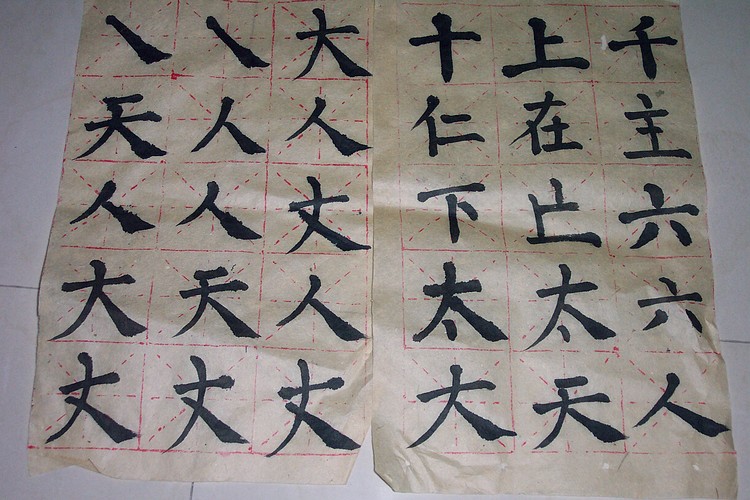 ㇏㇏大
天人人
人人丈
大天人
丈丈丈
十上千
仁在主
下止六
太太六
大天人